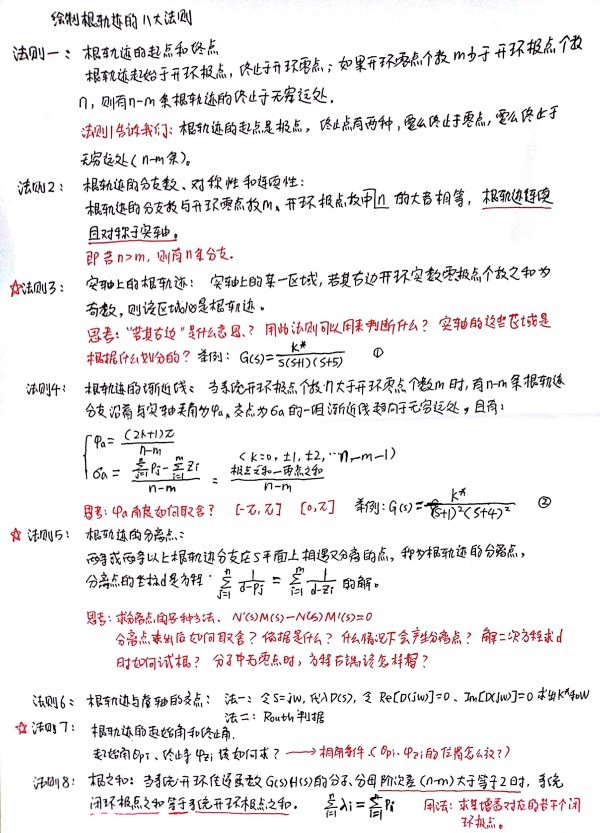 绘制根轨迹的八大法则
法则一: 根轨迹的起点和终点
根轨迹起始于开环极点,终止于开环零点;如果开环零点个数m少于开环极点个数
n,则有n-m条根轨迹的终止于无穷远处。
法则1告诉我们:根轨迹的起点是极点,终止点有两种,要么终止于零点,要么终止于
无穷远处(n-m条)。
法则2: 根轨迹的分支数、对称性和连续性:
根轨迹的分支数与开环零点数m、开环极点数中n的大者相等,根轨迹连续
且对称于实轴。
即若n>m,则有n条分支.
☆法则3: 实轴上的根轨迹: 实轴上的某一区域,若其右边开环实数零极点个数之和为
奇数,则该区域必是根轨迹。
思考:"若其右边"是什么意思?用此法则可以用来判断什么?实轴的这些区域是
根据什么划分的?举例: G(s)=K*/S(S+1)(S+5) ①
法则4: 根轨迹的渐近线: 当系统开环极点个数n大于开环零点个数m时,有n-m条根轨迹
分支沿着与实轴夹角为φa、交点为σa的一组渐近线趋向于无穷远处,且有:
φa=(2k+1)π/n-m
σa=∑Pj-∑Zi/n-m=极点之和-零点之和/n-m (k=0,±1,±2,…n-m-1)
思考:φa角度如何取舍? [-π,π] [0,π] 举例:G(s)=K*/(S+1)²(S+4)² ②
☆法则5: 根轨迹的分离点:
两条或两条以上根轨迹分支在S平面上相遇又分离的点,称为根轨迹的分离点,
分离点的坐标d是方程:∑1/d-Pj=∑1/d-Zi的解。
思考:求分离点的另种方法、N'(s)M(s)-N(s)M'(s)=0
分离点求出后如何取舍?依据是什么?什么情况下会产生分离点?解二次方程求d
时如何试根?分子中无零点时,方程右端该怎样写?
法则6: 根轨迹与虚轴的交点: 法一:令S=jw,代入D(s),令Re[D(jw)]=0、Im[D(jw)]=0求出K*和w
法二:Routh判据
☆法则7: 根轨迹的起始角和终止角.
起始角θpi、终止角φzi该如何求?→相角条件.(θpi、φzi的位置怎么放?)
法则8: 根之和:当系统开环传递函数G(s)H(s)的分子、分母阶次差(n-m)大于等于2时,系统
闭环极点之和等于系统开环极点之和. ∑λi=∑Pi 用法:求某增益对应的若干个闭
环极点。